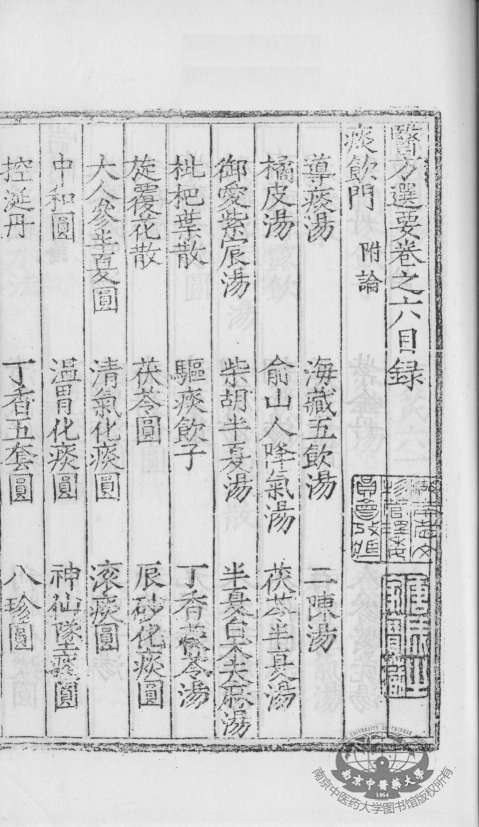 醫方選要卷之六目録
痰飲門 附論
導痰湯 海藏五飲湯 二陳湯
橘皮湯 俞山人降氣湯 茯苓半夏湯
御愛紫宸湯 柴胡半夏湯 半夏白朮天麻湯
枇杷葉散 驅痰飲子 丁香茯苓湯
旋覆花散 茯苓圓 辰砂化痰圓
大人參半夏圓 清氣化痰圓 滾痰圓
中和圓 温胃化痰圓 神仙墜痰圓
控涎丹 丁香五套圓 八珍圓
南京中醫藥大學
1954
南京中医药大学图书馆版权所有